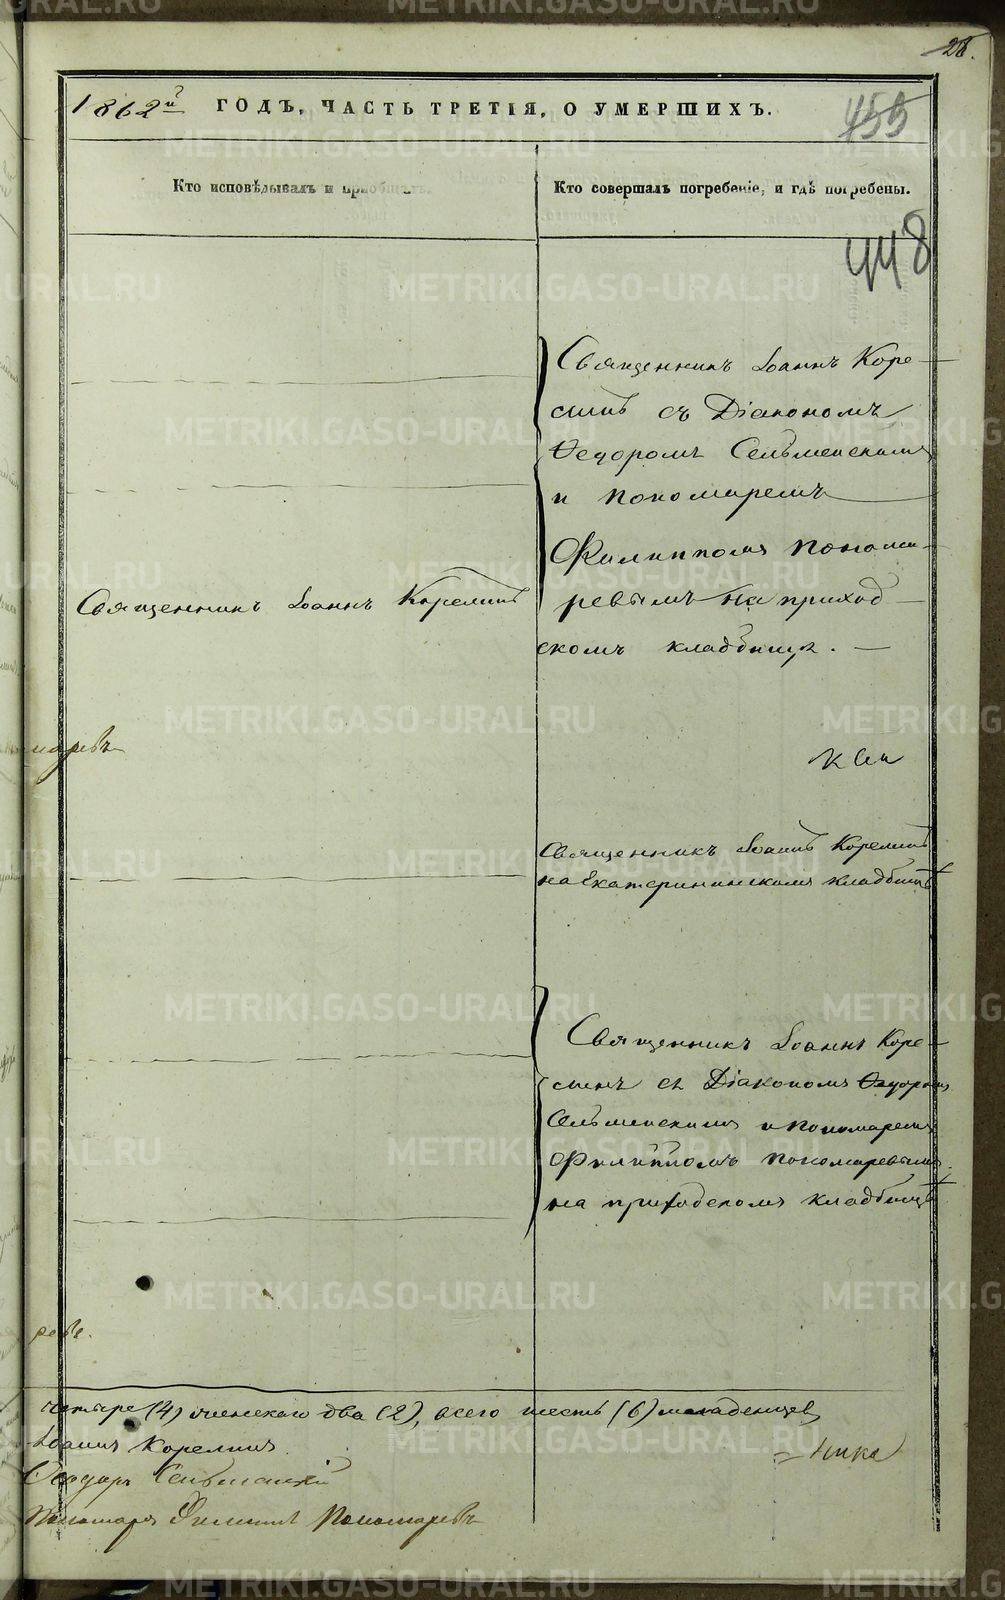 28.
1862й ГОДЪ, ЧАСТЬ ТРЕТІЯ, О УМЕРШИХЪ.
455
Кто исповѣдывалъ и пріобщалъ.
Кто совершалъ погребеніе, и гдѣ погребены.
448
Священникъ Іоаннъ Коре-
линъ съ Діакономъ
Ѳедоромъ Сельменскимъ
и Пономаремъ
Филиппомъ Понома-
ревымъ на приход-
скомъ кладбищѣ.
Священникъ Іоаннъ Корелинъ
маревъ
Священникъ Іоаннъ Корелинъ
на Екатерининскомъ кладбищѣ
Священникъ Іоаннъ Коре-
линъ съ Діакономъ Ѳедоромъ
Сельменскимъ и Пономаремъ
Филиппомъ Пономаревымъ
на приходскомъ кладбищѣ
четыре (4) женскаго два (2), всего шесть (6) младенцевъ
Іоаннъ Корелинъ
Ѳеодоръ Сельменскій
Пономарь Филиппъ Пономаревъ
METRIKI.GASO-URAL.RU